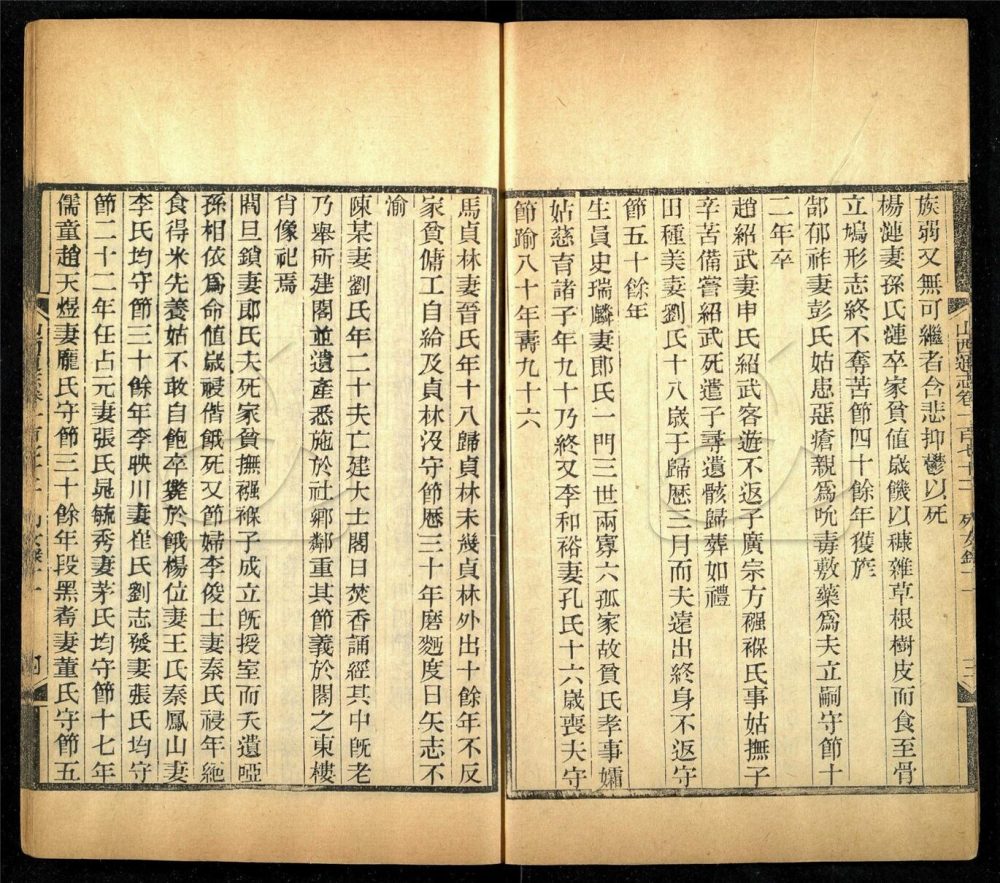 族弱又無可繼者含悲抑鬱以死
楊漣妻孫氏漣卒家貧值歲饑以糠雜草根樹皮而食至骨
立鳩形志終不奪苦節四十餘年獲旌
郜郁祚妻彭氏姑患惡瘡親爲吮毒敷藥爲夫立嗣守節十
二年卒
趙紹武妻申氏紹武客遊不返子廣宗方襁褓氏事姑撫子
辛苦備嘗紹武死遣子尋遺骸歸葬如禮
田種美妻劉氏十八歲于歸歷三月而夫遠出終身不返守
節五十餘年
生員史瑞麟妻郎氏一門三世兩寡六孤家故貧氏孝事孀
姑慈育諸子年九十乃終又李和裕妻孔氏十六歲喪夫守
節踰八十年壽九十六
山西通志卷一百七十三 列女錄十一
馬貞林妻晉氏年十八歸貞林未幾貞林外出十餘年不反
家貧傭工自給及貞林沒守節歷三十年磨麪度日矢志不
渝
陳某妻劉氏年二十夫亡建大士閣日焚香誦經其中旣老
乃舉所建閣並遺產悉施於社鄉鄰重其節義於閣之東樓
肖像祀焉
閻旦鎖妻郎氏夫死家貧撫襁褓子成立旣授室而夭遺啞
孫相依爲命值歲祲偕餓死又節婦李俊士妻秦氏祲年絶
食得米先養姑不敢自飽卒斃於餓楊位妻王氏秦鳳山妻
李氏均守節三十餘年李映川妻崔氏劉志發妻張氏均守
節二十二年任占元妻張氏晁毓秀妻茅氏均守節十七年
儒童趙天煜妻龐氏守節三十餘年段黑耇妻董氏守節五